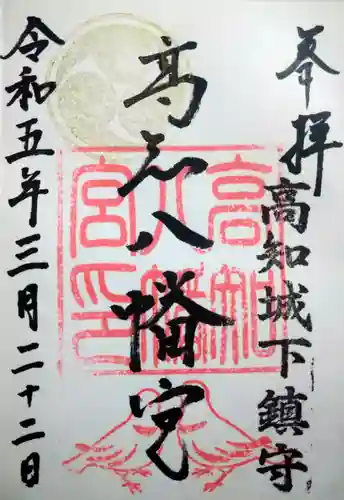 奉拝
高知城下鎮守
高知八幡宮
令和五年三月二十二日
高知八幡宮印